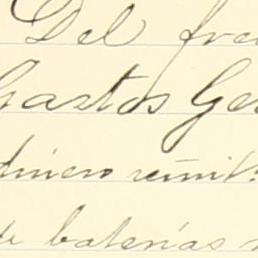 Del fre
Gastos Ge
dinero remit
de baterías